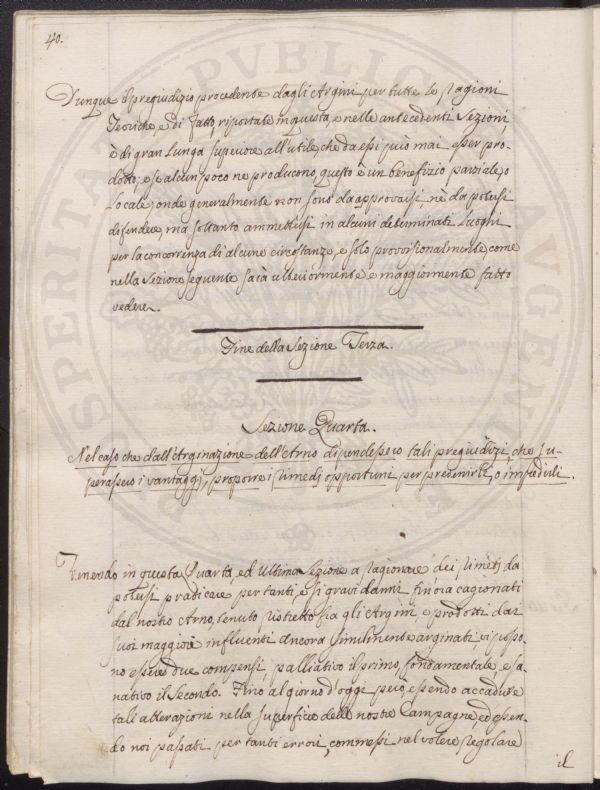 40.
Dunque il pregiudizio procedente dagli Argini per tutte le ragioni
Teoriche e di fatto, riportate in questa, e nelle antecedenti Sezioni,
è di gran lunga superiore all'utile, che da essi può mai esser pro-
dotto; e se alcun poco ne producono, questo è un benefizio parziale, o
Locale; onde generalmente non sono da approvarsi, nè da potersi
difendere, ma soltanto ammettersi in alcuni determinati Luoghi
per la concorrenza di alcune circostanze, e solo provvisionalmente, come
nella Sezione seguente sarà ulteriormente e maggiormente fatto
vedere.
Fine della Sezione Terza.
Sezione Quarta.
Nel caso che dall'Arginazione dell'Arno dipendessero tali pregiudizi, che su-
perassero i vantaggi, proporre i rimedi opportuni per prevenirli, o impedirli.
Venendo in questa Quarta, ed ultima Sezione a ragionare dei rimedj da
potersi praticare per tanti, e sì gravi danni fin'ora cagionati
dal nostro Arno, tenuto ristretto fra gli Argini, e prodotti dai
suoi maggiori influenti ancora similmente arginati, vi posso-
no essere due compensi, palliativo il primo, fondamentale, e sa-
nativo il Secondo. Fino al giorno d'oggi però, essendo accadute
tali alterazioni nella superficie delle nostre Campagne, ed essen-
do noi passati per tanti errori, commessi nel volere regolare
il
PROSPERITATI PVBLICAE AVGENDAE